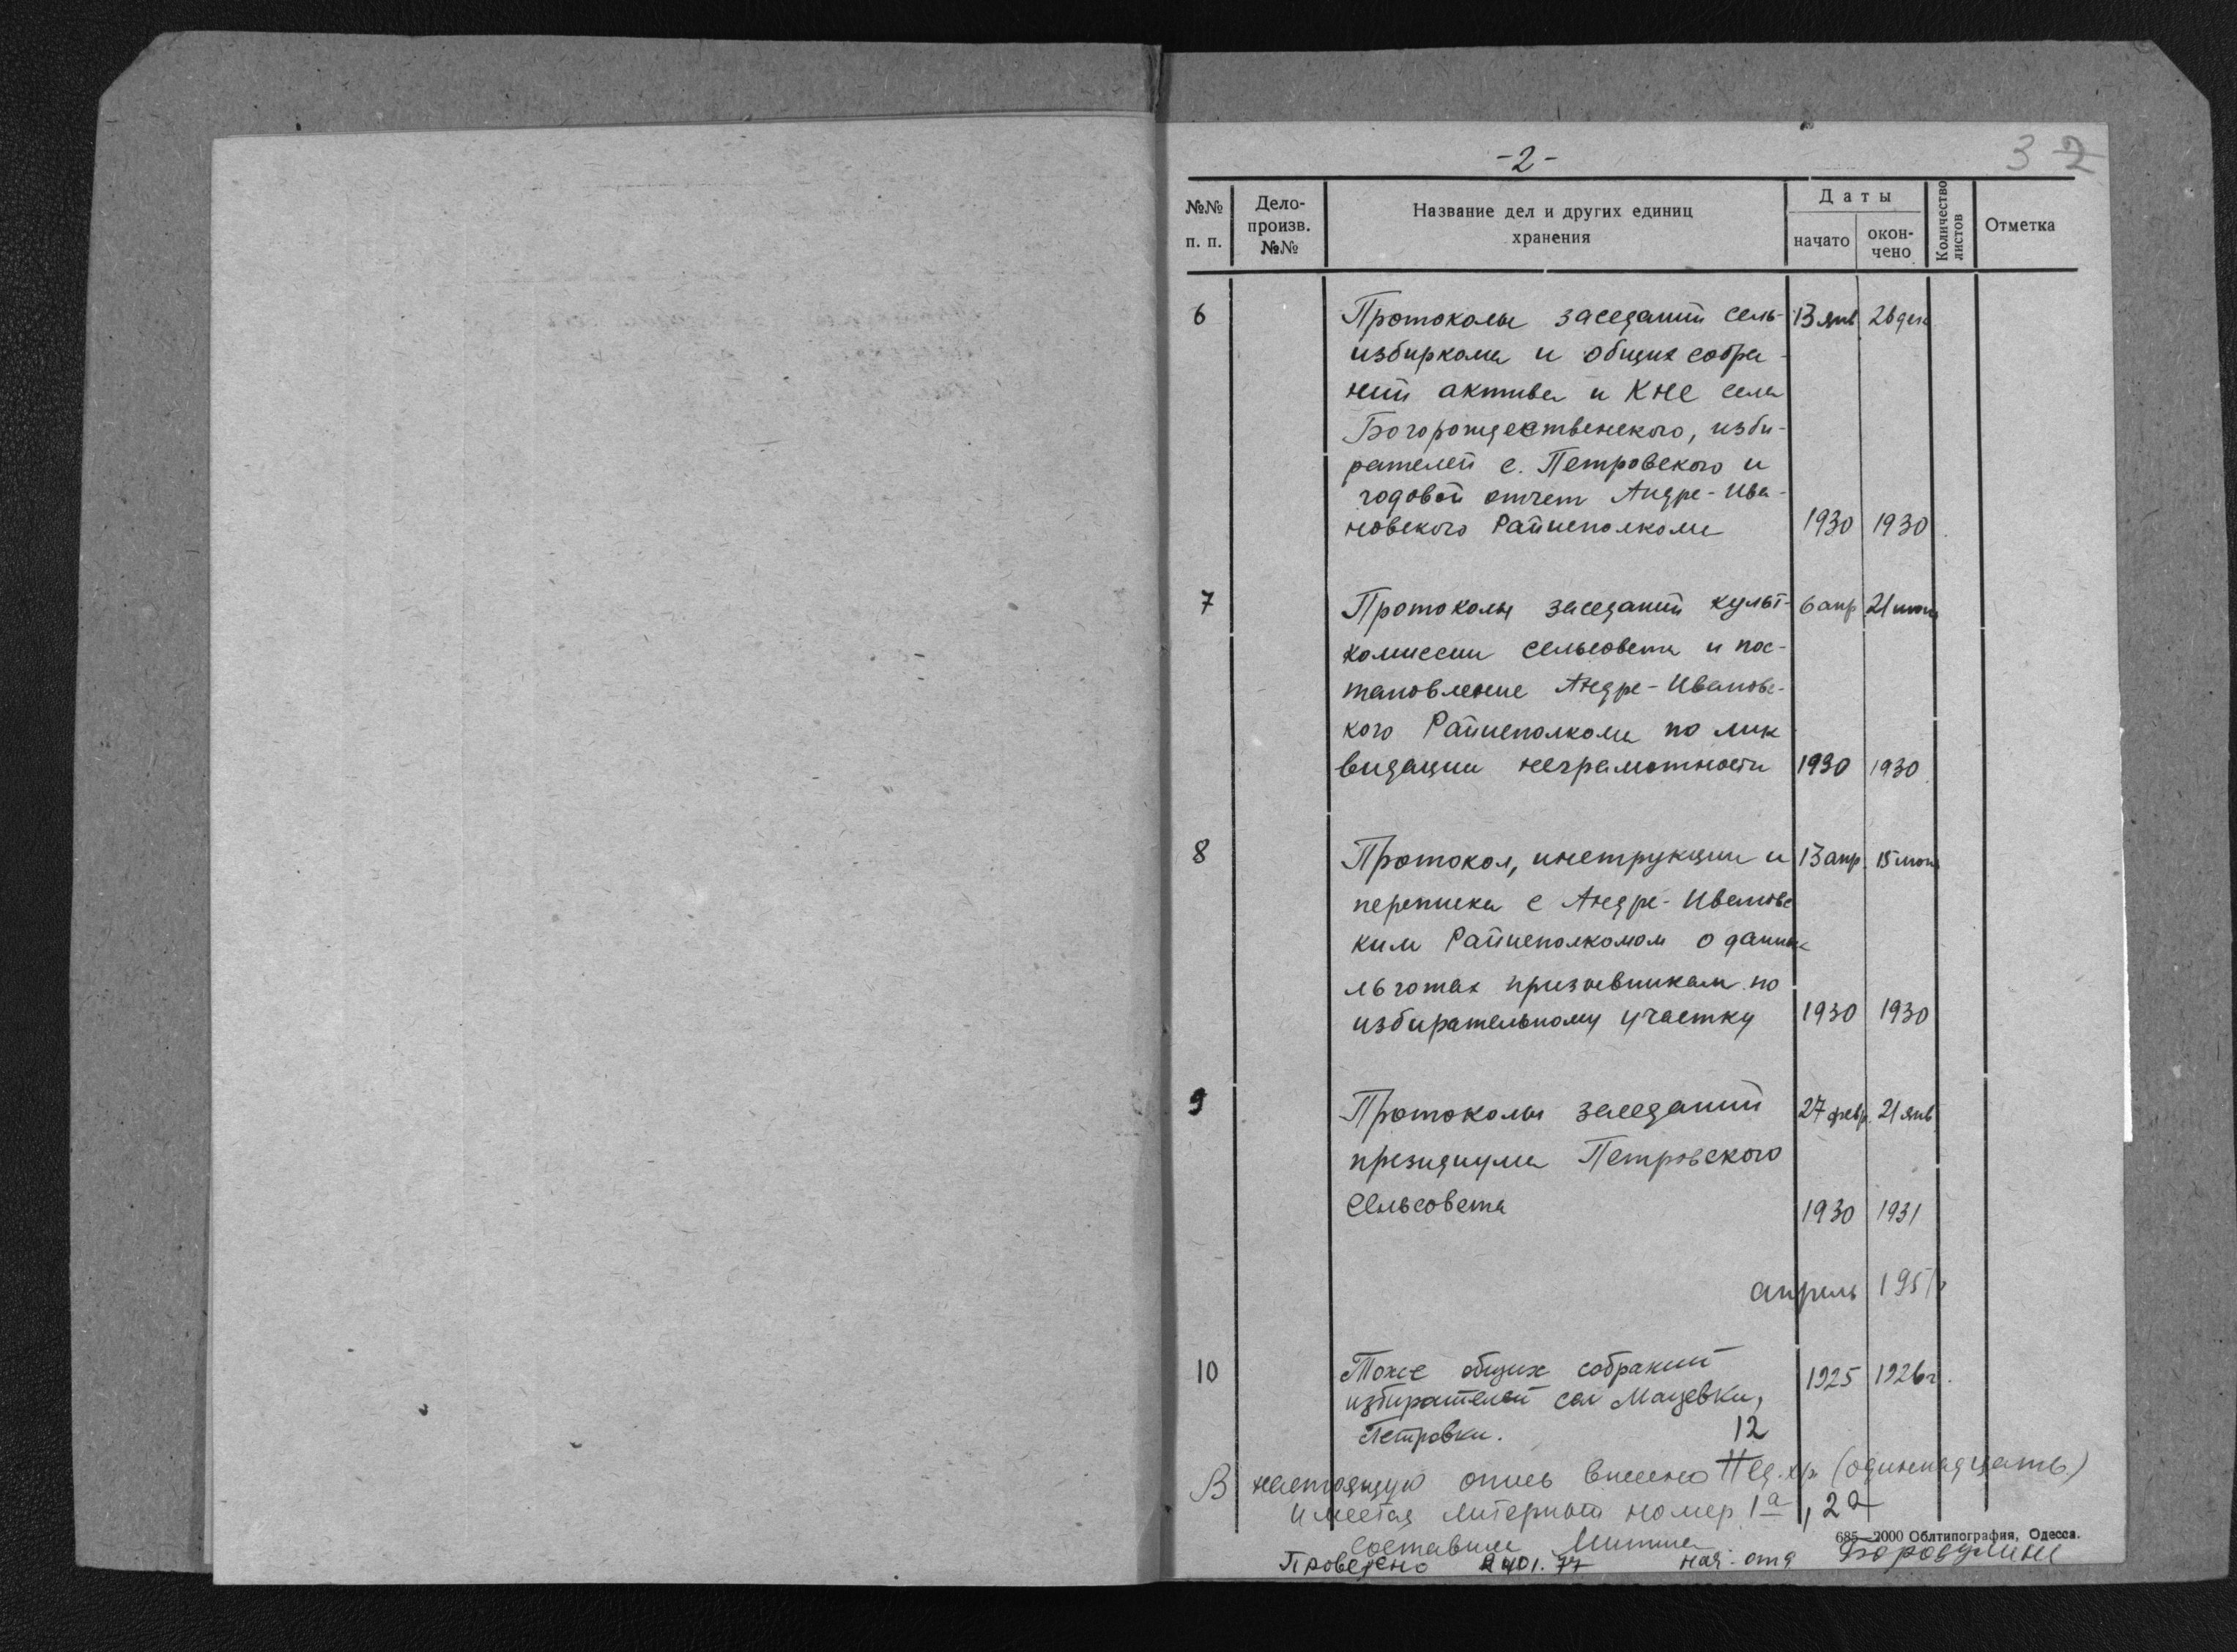 -2-
3 2
№№ п. п.
Дело-произв. №№
Название дел и других единиц хранения
Даты
начато
окон-чено
Количество листов
Отметка
6 Протоколы заседаний сель- 13 янв 26 дек
избиркома и общих собра-
ний актива и КНС села
Богорождественского, изби-
рателей с. Петровского и
годовой отчет Андре-Ива-
новского Райисполкома 1930 1930
7 Протоколы заседаний культ- 6 апр 21 июня
комиссии сельсовета и пос-
тановление Андре-Иановс-
кого Райисполкома по лик
видации неграмотности 1930 1930
8 Протокол, инструкции и 13 апр. 15 июня
переписка с Андре-Ивановс
ким Райисполкомом о данных
льготах призывникам по
избирательному участку 1930 1930
9 Протоколы заседаний 27 февр. 21 янв
президиума Петровского
Сельсовета 1930 1931
апрель 195
10 Тоже общих собраний 1925 1926 г.
избирателей сел Мацевки,
Петровки.
12
В настоящую опись внесено 11 ед. хр. (одиннадцать)
Имеется литерный номер 1а, 2а
685—2000 Облтипография, Одесса.
Составила
Проверено нач. отд